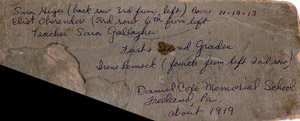 Sara Heiger (back row 3rd from left) Born 11-19-13
Eliot Oberender (3rd row 6th from left
Teacher Sara Gallagher
First & Second Grades
Irene (fourth from left 2nd row)
Daniel Coxe Memorial School
Freeland, Pa.
about 1919